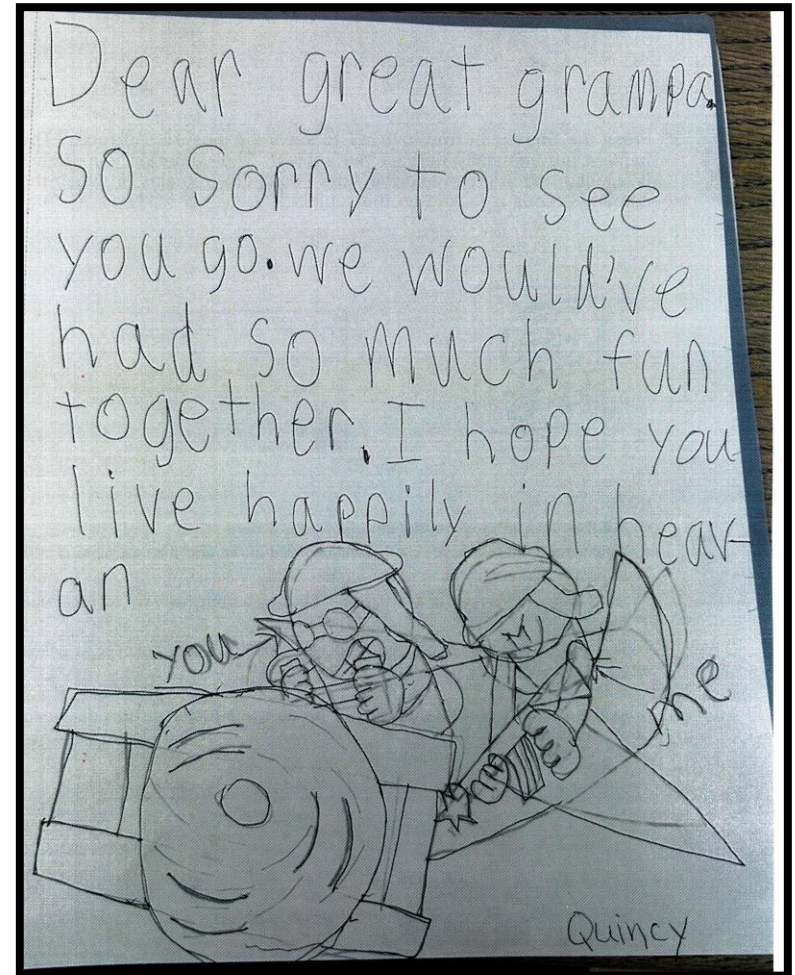 Dear great grampa.
So sorry to see
you go. we would've
had so much fun
together. I hope you
live happily in heav-
an
you
me
Quincy